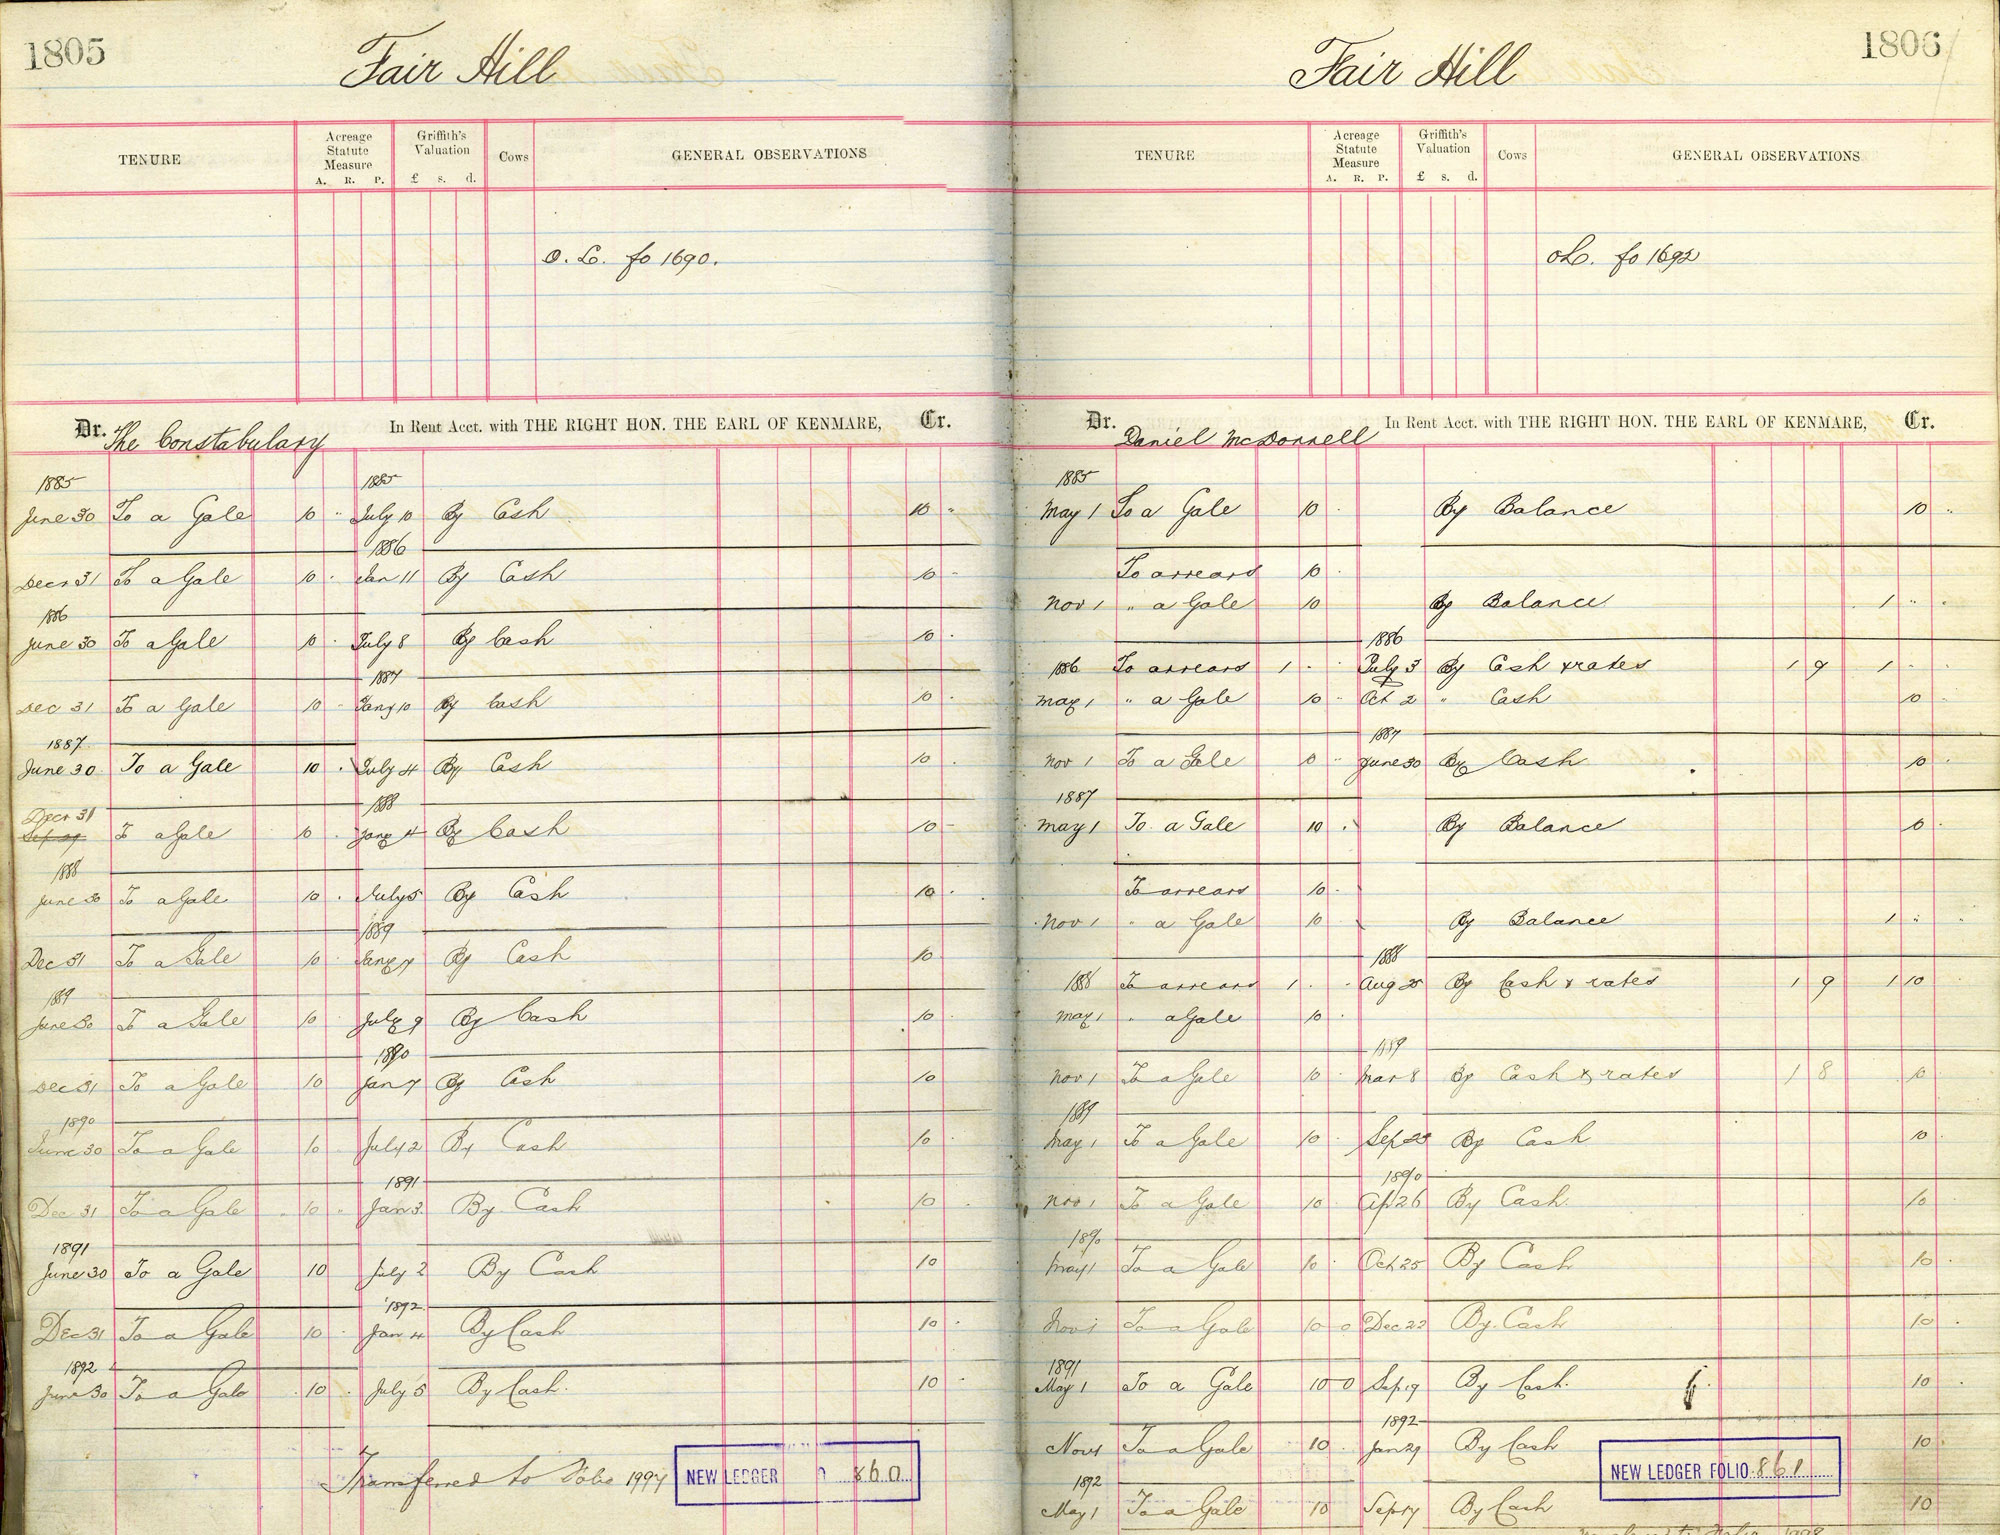 1805
Fair Hill
TENURE
Acreage Statute Measure
A. R. P.
Griffith's Valuation
£ s. d.
Cows
GENERAL OBSERVATIONS
O. L. fo 1690.
Dr. The Constabulary In Rent Acct. with THE RIGHT HON. THE EARL OF KENMARE, Cr.
1885 1885
June 30 To a Gale 10 " July 10 By Cash 10 "
1886
Decr 31 To a Gale 10 . Jan 11 By Cash 10 -
1886
June 30 To a Gale 10 . July 8 By Cash 10 .
1887
Dec 31 To a Gale 10 Jany 10 By Cash 10 .
1887
June 30 To a Gale 10 . July 4 By Cash 10 .
1888
Decr 31
Sep 29 To a Gale 10 . Jany 4 By Cash 10 -
1888
June 30 To a Gale 10 . July 5 By Cash 10 .
1889
Dec 31 To a Gale 10 . Jany 7 By Cash 10
1889
June 30 To a Gale 10 . July 9 By Cash 10 .
1890
Dec 31 To a Gale 10 Jan 7 By Cash 10
1890
June 30 To a Gale 10 July 2 By Cash 10 .
1891
Dec 31 To a Gale 10 Jan 3 By Cash 10 .
1891
June 30 To a Gale 10 July 2 By Cash 10
1892
Dec 31 To a Gale 10 . Jan 4 By Cash 10 .
1892
June 30 To a Gale 10 . July 5 By Cash. 10
Transferred to Folio 1997 NEW LEDGER 860
1806
Fair Hill
TENURE
Acreage Statute Measure
A. R. P.
Griffith's Valuation
£ s. d.
Cows
GENERAL OBSERVATIONS
OL. fo 1692
Dr. Daniel McDonnell In Rent Acct. with THE RIGHT HON. THE EARL OF KENMARE, Cr.
1885
May 1 To a Gale 10 . By Balance 10 "
To arrears 10 .
Nov 1 " a Gale 10 By Balance 1 " "
1886
1886 To arrears 1 . . July 3 By Cash & rates 1 9 1 . .
May 1 " a Gale 10 " Oct 2 " Cash 10 .
1887
Nov 1 To a Gale 10 " June 30 By Cash 10 .
1887
May 1 To a Gale 10 . By Balance 10 .
To arrears 10 .
Nov 1 " a Gale 10 By Balance 1 "
1888
1888 To arrears 1 . . Aug 25 By Cash & rates 1 9 1 10
May 1 " a Gale 10 .
1889
Nov 1 To a Gale 10 . Mar 8 By Cash & rates 1 8 10
1889
May 1 To a Gale 10 . Sep 25 By Cash 10 .
1890
Nov 1 To a Gale 10 . Ap 26 By Cash 10
1890
May 1 To a Gale 10 . Oct 25 By Cash 10 .
Nov 1 To a Gale 10 0 Dec 22 By Cash 10 .
1891
May 1 To a Gale 10 0 Sep 19 By Cash. 10 .
1892
Nov 1 To a Gale 10 . Jan 29 By Cash 10
NEW LEDGER FOLIO 861
1892
May 1 To a Gale 10 Sep 17 By Cash 10